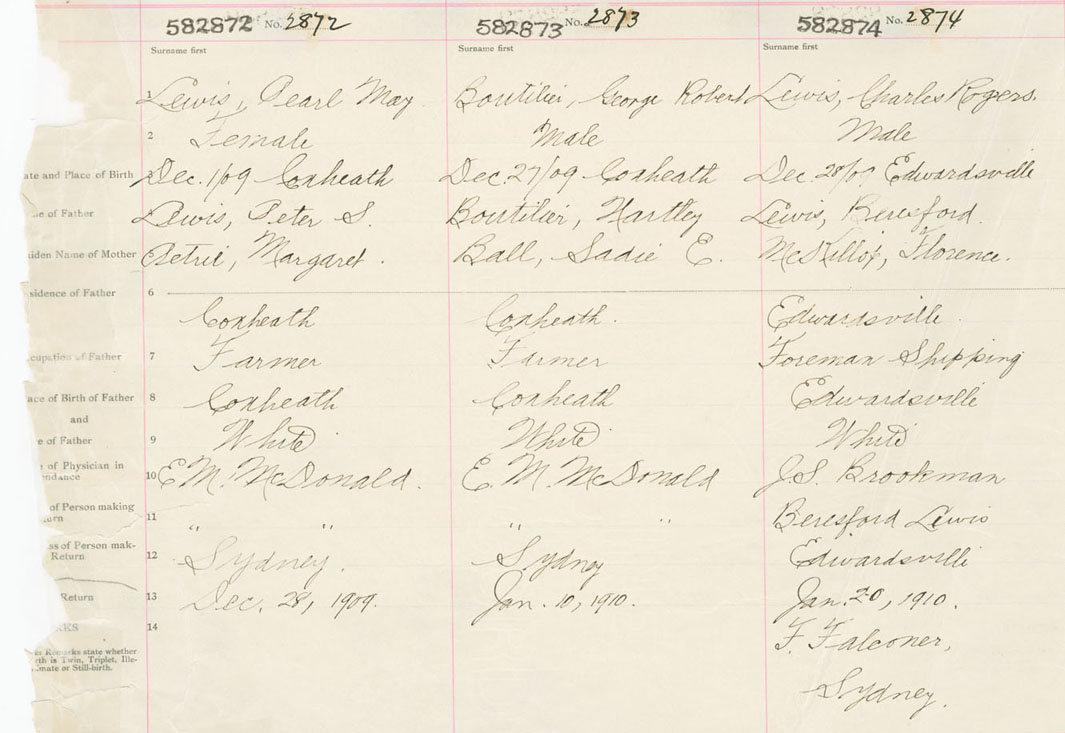 582872 No. 2872
582873 No. 2873
582874 No. 2874
Surname first
Surname first
Surname first
1 Lewis, Pearl May
Boutilier, George Robert
Lewis, Charles Rogers.
2 Female
Male
Male
ate and Place of Birth
3 Dec. 1/09 Coxheath
Dec. 27/09 Coxheath
Dec. 28/09 Edwardsville
e of Father
Lewis, Peter S.
Boutilier, Hartley
Lewis, Beresford.
iden Name of Mother
Petrie, Margaret.
Ball, Sadie E.
McKillop, Florence.
sidence of Father
6
Coxheath
Coxheath.
Edwardsville.
cupation of Father
7 Farmer
Farmer
Foreman Shipping
ace of Birth of Father
8 Coxheath
Coxheath
Edwardsville
and
e of Father
9 White
White
White
of Physician in
ndance
10 E M. McDonald.
E. M. McDonald
J.S. Brookman
of Person making
urn
11 " "
" "
Beresford Lewis
ss of Person mak-
Return
12 Sydney.
Sydney
Edwardsville
Return
13 Dec. 28, 1909.
Jan. 10, 1910.
Jan. 20, 1910.
RKS
14
F. Falconer,
Sydney.
er Remarks state whether
rth is Twin, Triplet, Ille-
imate or Still-birth.